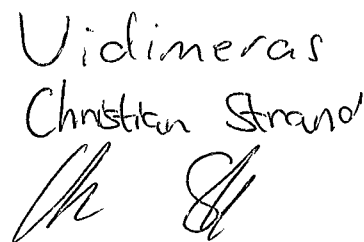 Vidimeras
Christian Strand